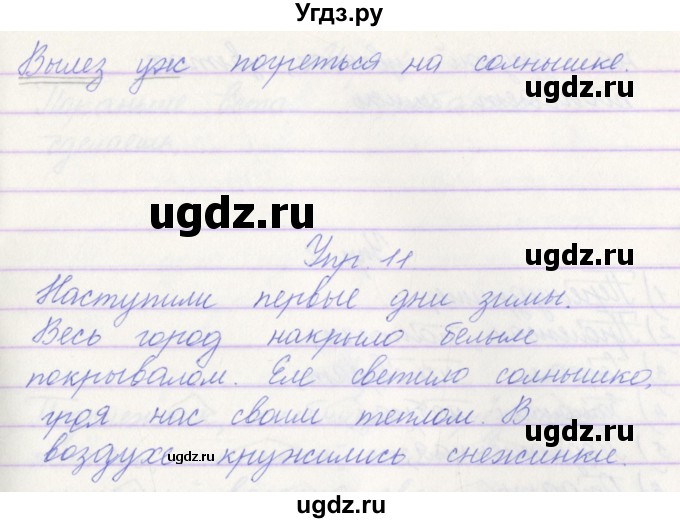 Угдз.ру
Вылез уж погреться на солнышке.
ugdz.ru
ugdz.ru
Упр. 11
ugdz.ru
Наступили первые дни зимы.
Весь город накрыло белым
покрывалом. Еле светило солнышко,
грея нас своим теплом. В
ugdz.ru
воздухе кружились снежинки.
ugdz.ru
ugdz.ru